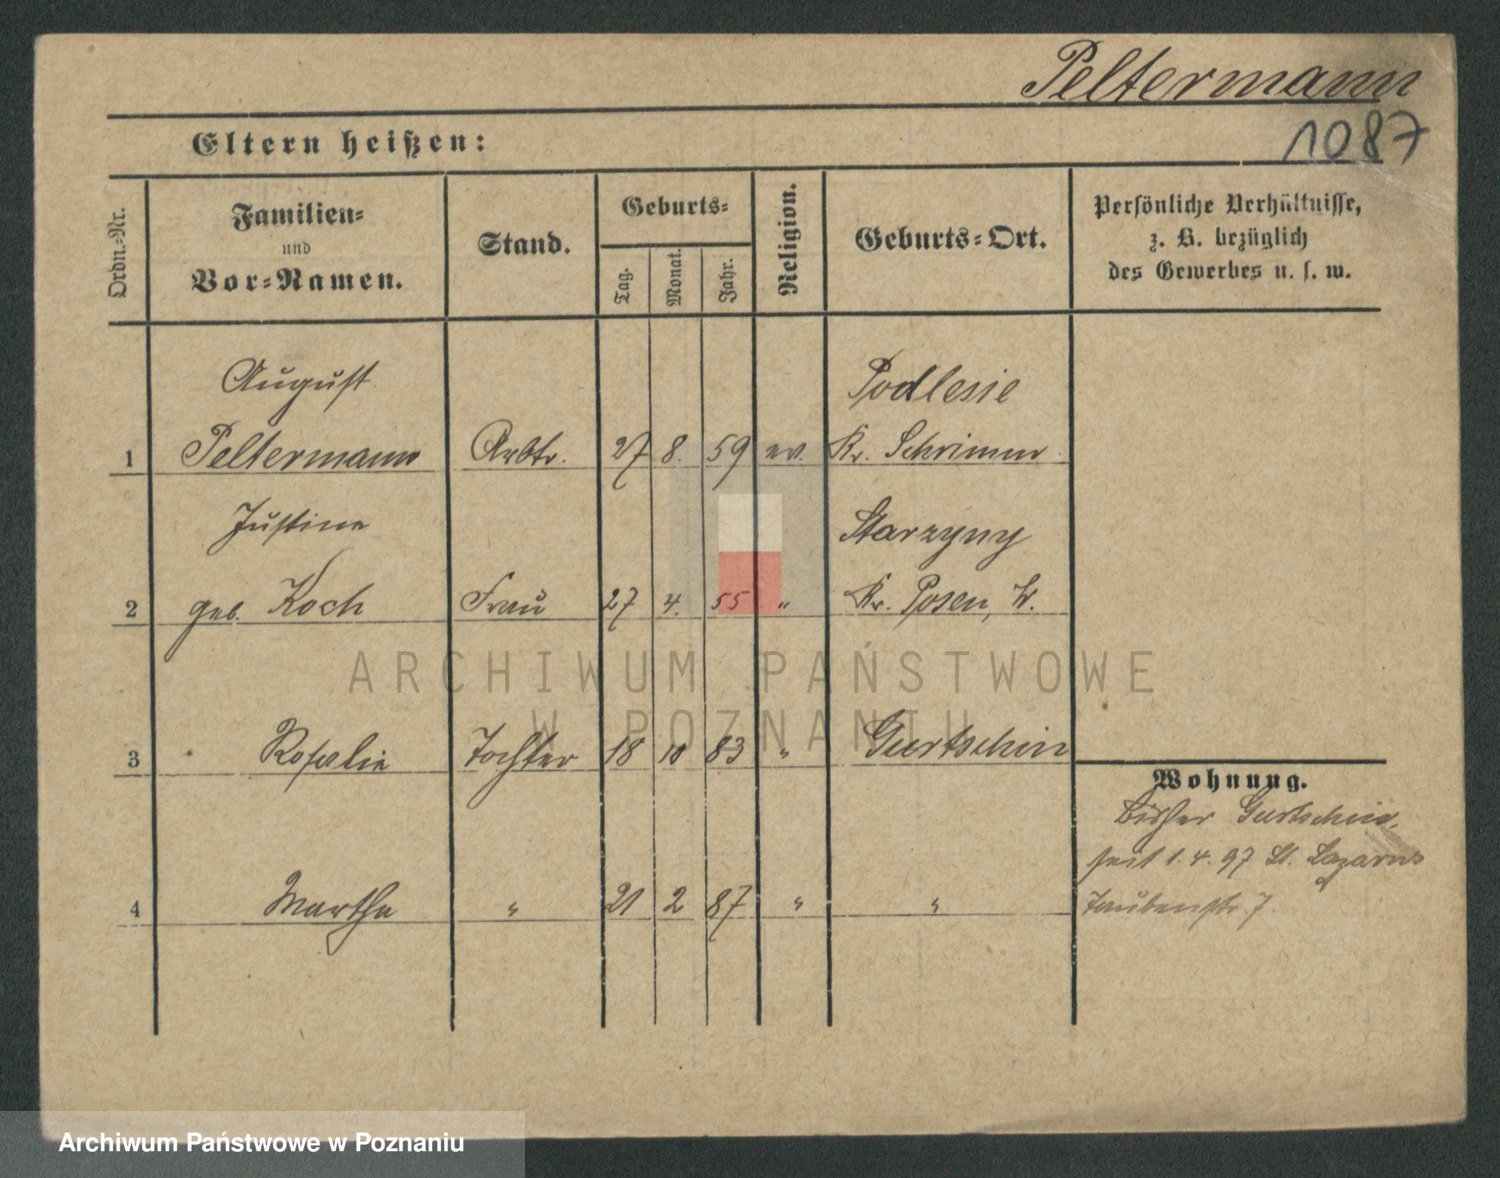 Peltermann
1087
Eltern heißen:
Ordn.-Nr.
Familien-
und
Vor-Namen.
Stand.
Geburts-
Tag.
Monat.
Jahr.
Religion.
Geburts-Ort.
Persönliche Verhältnisse,
z. B. bezüglich
des Gewerbes u. s. w.
August
Podlesie
1 Peltermann Arbtr. 27 8. 59 ev. Kr. Schrimm
Justine
Starzyny
2 geb. Koch Frau 27 4. 55 " Kr. Posen, W.
3 Rosalie Tochter 18 10 83 " Gurtschin
4 Martha " 21 2 87 " "
Wohnung.
bisher Gurtschin,
seit 1.4.97 St. Lazarus
Taubenstr. 7
ARCHIWUM PAŃSTWOWE
W POZNANIU
Archiwum Państwowe w Poznaniu